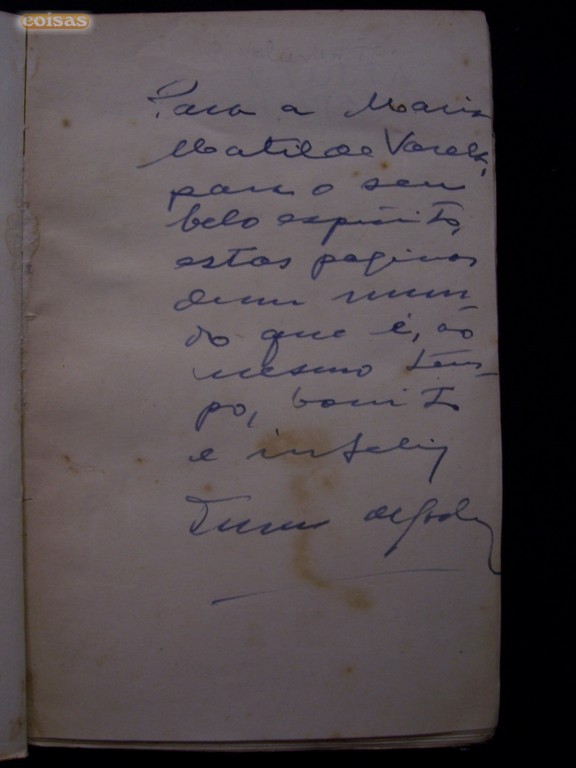 coisas
Para a Maria
Matilde Varela,
para o seu
belo espirito,
estas paginas
dum mun-
do que é, ao
mesmo tem-
po, bonito
e infeliz